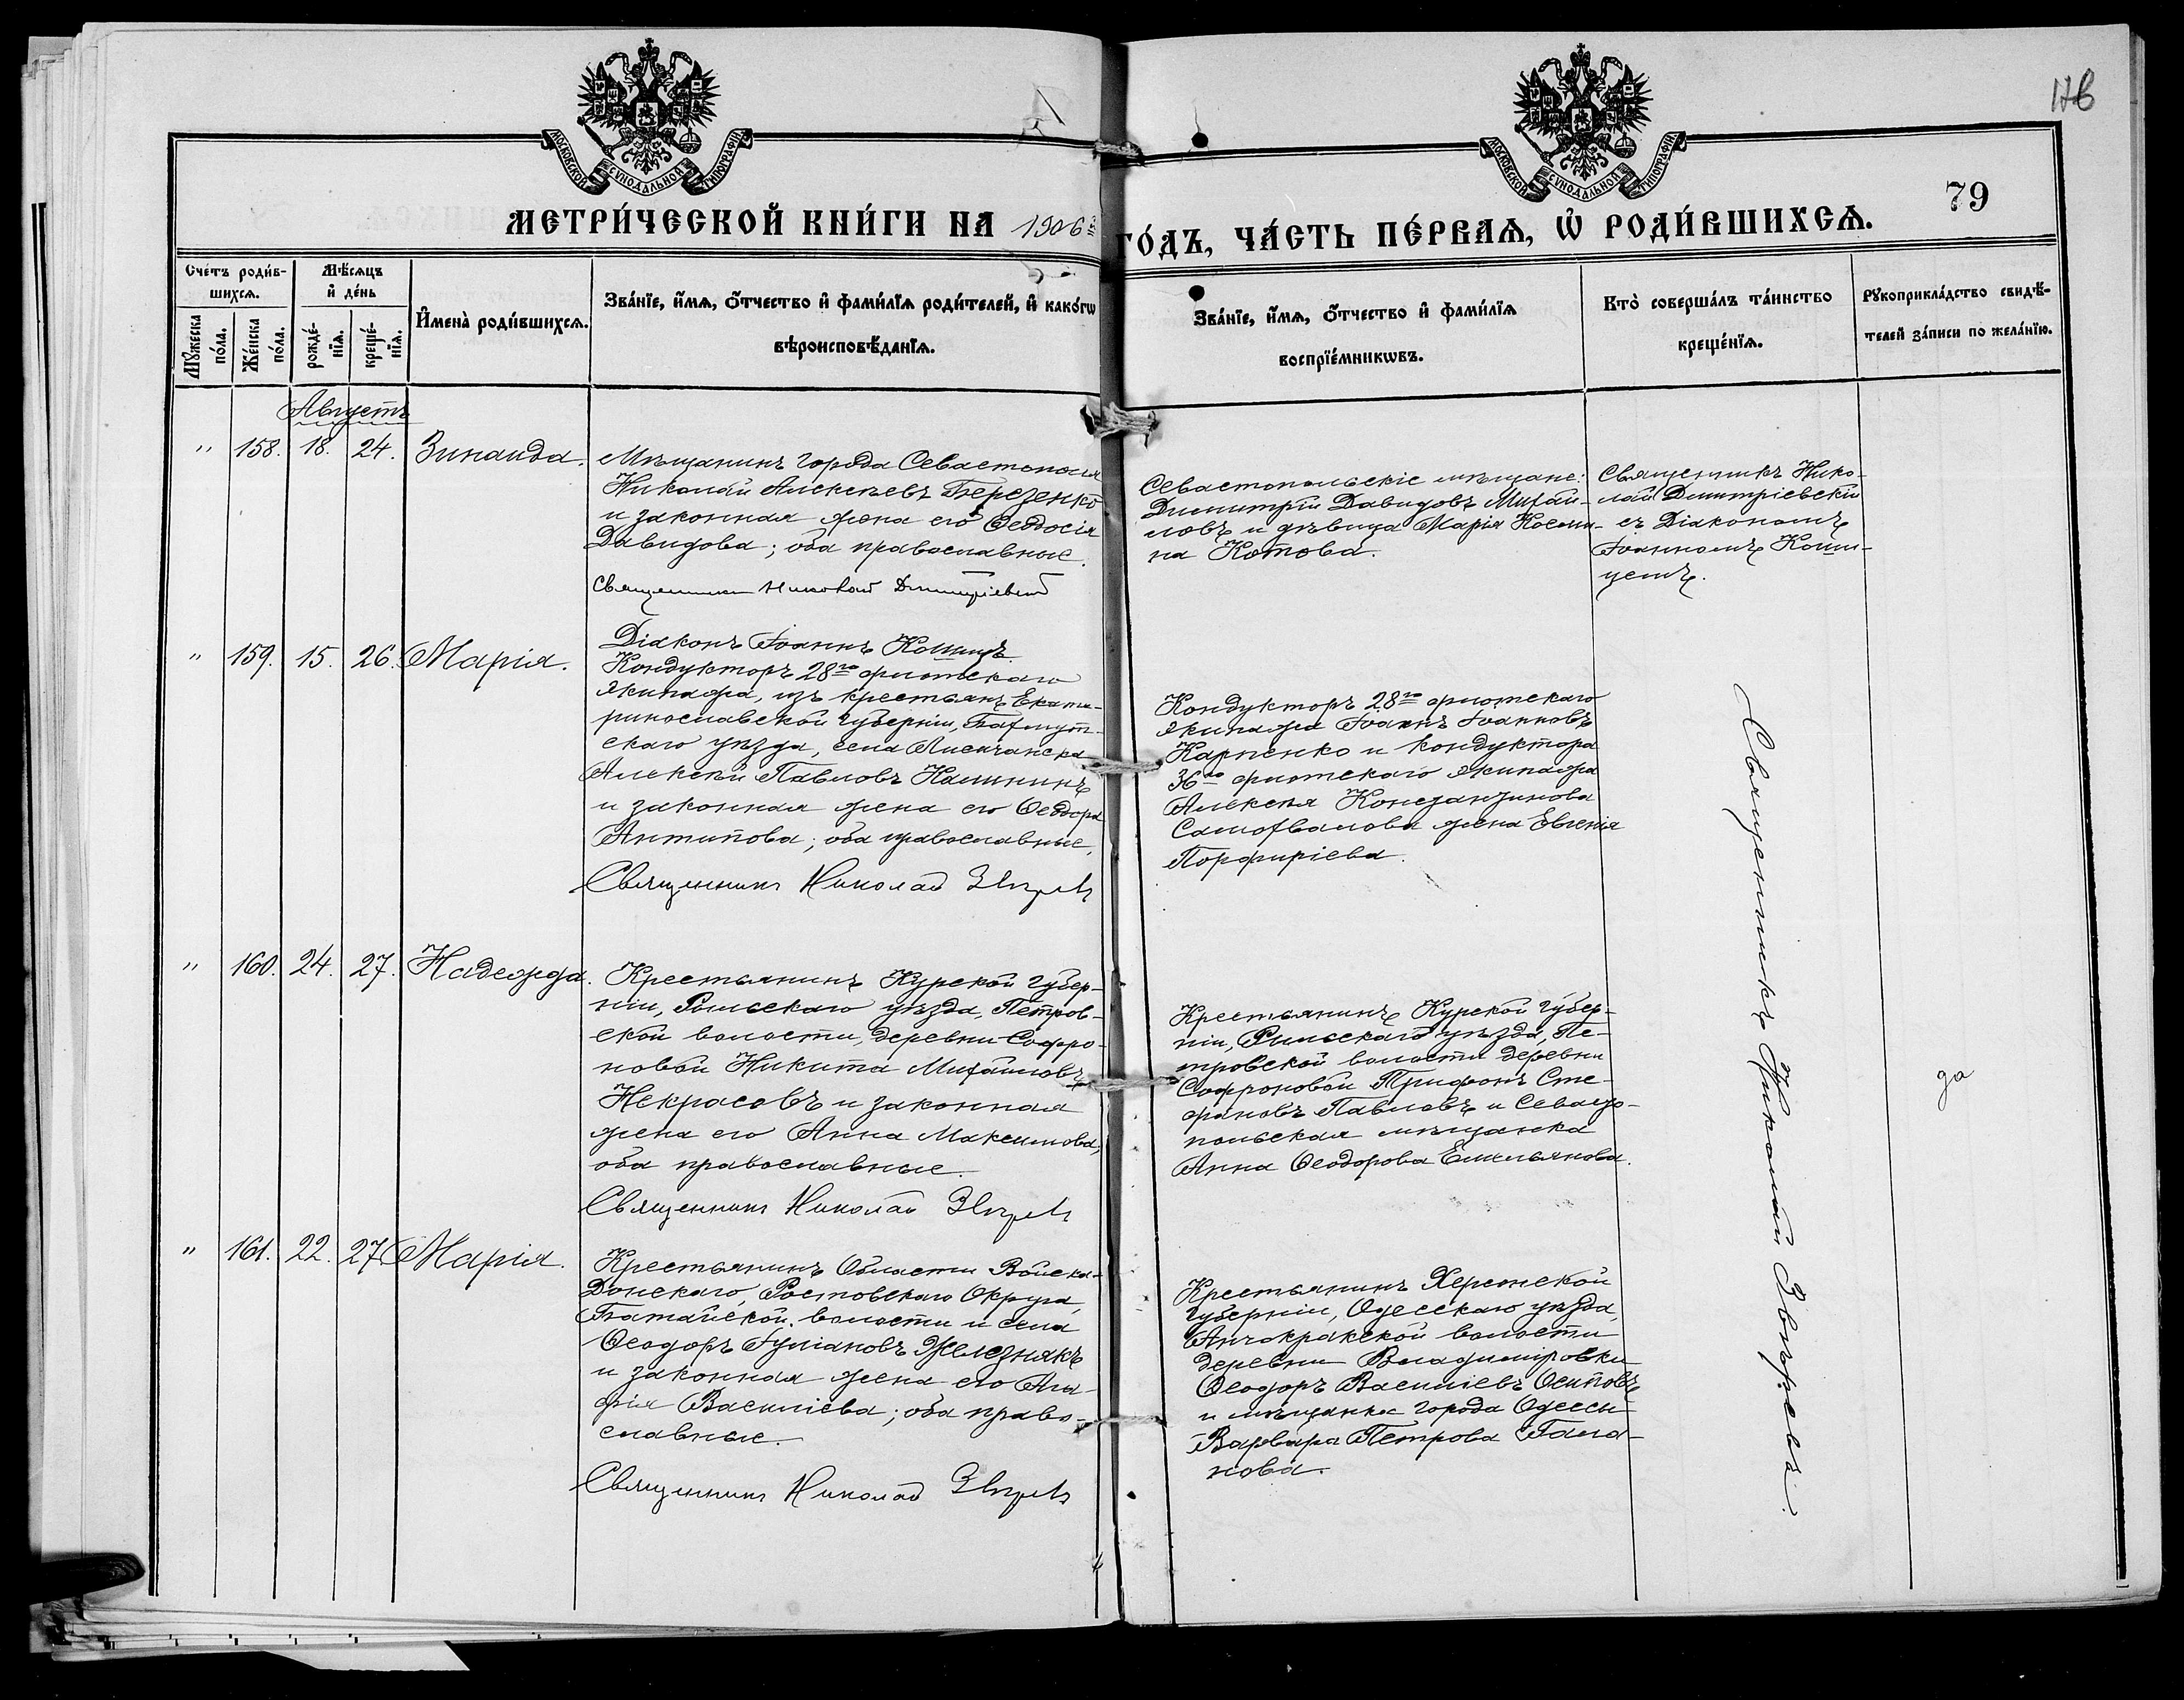 МОСКОВСКОЙ СѴНОДАЛЬНОЙ ТИПОГРАФІИ
МОСКОВСКОЙ СѴНОДАЛЬНОЙ ТИПОГРАФІИ
79
МЕТРИ́ЧЕСКОЙ КНИ́ГИ НА 1906й ГО́ДЪ, ЧА́СТЬ ПЕ́РВАѦ, Ѡ҆ РОДИ́ВШИХСѦ.
Сче́тъ роди́в-
шихсѧ.
Мꙋ́жеска по́ла.
Же́нска по́ла.
Мѣ́сѧцъ
и҆ де́нь
рожде́-нїѧ.
креще́-нїѧ.
И҆мена̀ роди́вшихсѧ.
Зва́нїе, и҆́мѧ, ѻ҆́тчество и҆ фами́лїѧ роди́телей, и҆ како́гѡ
вѣроисповѣ́данїѧ.
Зва́нїе, и҆́мѧ, ѻ҆́тчество и҆ фами́лїѧ
воспрїе́мникѡвъ.
Кто̀ соверша́лъ та́инство
креще́нїѧ.
Рꙋкоприкла́дство свидѣ́-
телей за́писи по жела́нїю.
Августъ
" 158. 18. 24. Зинаида.
Мѣщанинъ города Севастополя
Николай Алексѣевъ Березенко
и законная жена его Ѳеодосія
Давидова; оба православные.
Священникъ Николай Димитріевскій
Діаконъ Іоаннъ Кошицъ.
Севастопольскіе мѣщане:
Димитрій Давидовъ Михай-
ловъ и дѣвица Марія Косми-
на Котова.
Священникъ Нико-
лай Димитріевскій
съ Діакономъ
Іоанномъ Коши-
цемъ.
" 159. 15. 26. Марія.
Кондукторъ 28го флотскаго
экипажа, изъ крестьянъ Екате-
ринославской губерніи, Бахмут-
скаго уѣзда, села Лисичанска
Алексѣй Павловъ Калининъ
и законная жена его Ѳеодора
Антипова; оба православные.
Священникъ Николай Звѣревъ
Кондукторъ 28го флотскаго
экипажа Іоаннъ Іоанновъ
Карпенко и кондуктора
36го флотскаго экипажа
Алексѣя Константинова
Самохвалова жена Евгенія
Порфиріева.
Священникъ Николай Звѣревъ.
" 160. 24. 27. Надежда.
Крестьянинъ Курской губер-
ніи, Рыльскаго уѣзда, Петров-
ской волости, деревни Софро-
новой Никита Михайловъ
Некрасовъ и законная
жена его Анна Максимова;
оба православные.
Священникъ Николай Звѣревъ
Крестьянинъ Курской губер-
ніи, Рыльскаго уѣзда, Пе-
тровской волости деревни
Софроновой Трифонъ Сте-
фановъ Павловъ и Севасто-
польская мѣщанка
Анна Ѳеодорова Емельянова.
да
" 161. 22. 27. Марія.
Крестьянинъ Области Войска
Донскаго, Ростовскаго Округа,
Батайской волости и села
Ѳеодоръ Іуліановъ Железнякъ
и законная жена его Ага-
фія Василіева; оба право-
славные.
Священникъ Николай Звѣревъ
Крестьянинъ Херсонской
губерніи, Одесскаго уѣзда,
Анчекракской волости
деревни Владиміровки
Ѳеодоръ Василіевъ Осиповъ
и мѣщанка города Одессы
Варвара Петрова Гала-
нова.